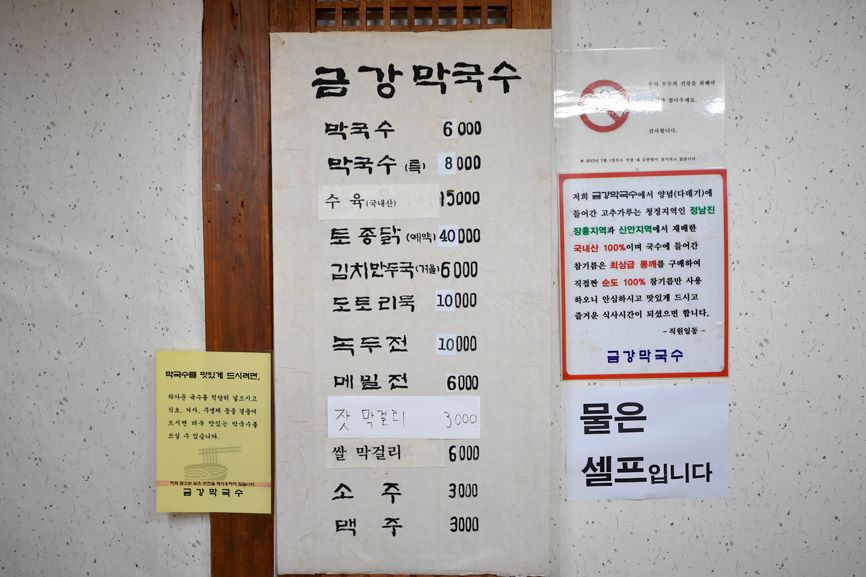 금강막국수
막국수 6000
막국수 (특) 8000
수육(국내산) 15000
토종닭(예약) 40000
김치만두국(겨울) 6000
도토리묵 10000
녹두전 10000
메밀전 6000
잣 막걸리 3000
쌀 막걸리 6000
소주 3000
맥주 3000
막국수를 맛있게 드시려면,
차가운 육수를 적당히 넣으시고
식초, 겨자, 무생채 등을 곁들여
드시면 더욱 맛있는 막국수를
드실 수 있습니다.
금강막국수
우리 모두의 건강을 위해서
참아주세요.
감사합니다.
저희 금강막국수에서 양념(다데기)에
들어간 고추가루는 청정지역인 정남진
장흥지역과 신안지역에서 재배한
국내산 100%이며 국수에 들어간
참기름은 최상급 통깨를 구매하여
직접짠 순도 100% 참기름만 사용
하오니 안심하시고 맛있게 드시고
즐거운 식사시간이 되셨으면 합니다.
- 직원일동 -
금강막국수
물은
셀프입니다